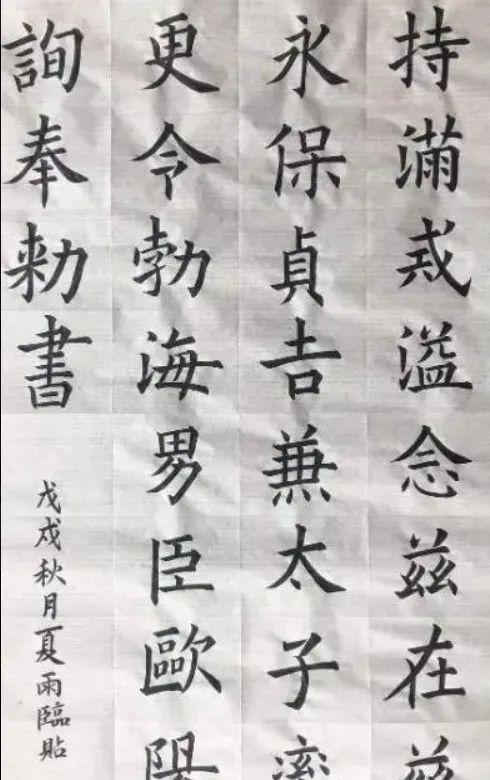 持滿戒溢念兹在兹
永保貞吉兼太子率
更令勃海男臣歐陽
詢奉勅書
戊戌秋月夏雨臨貼